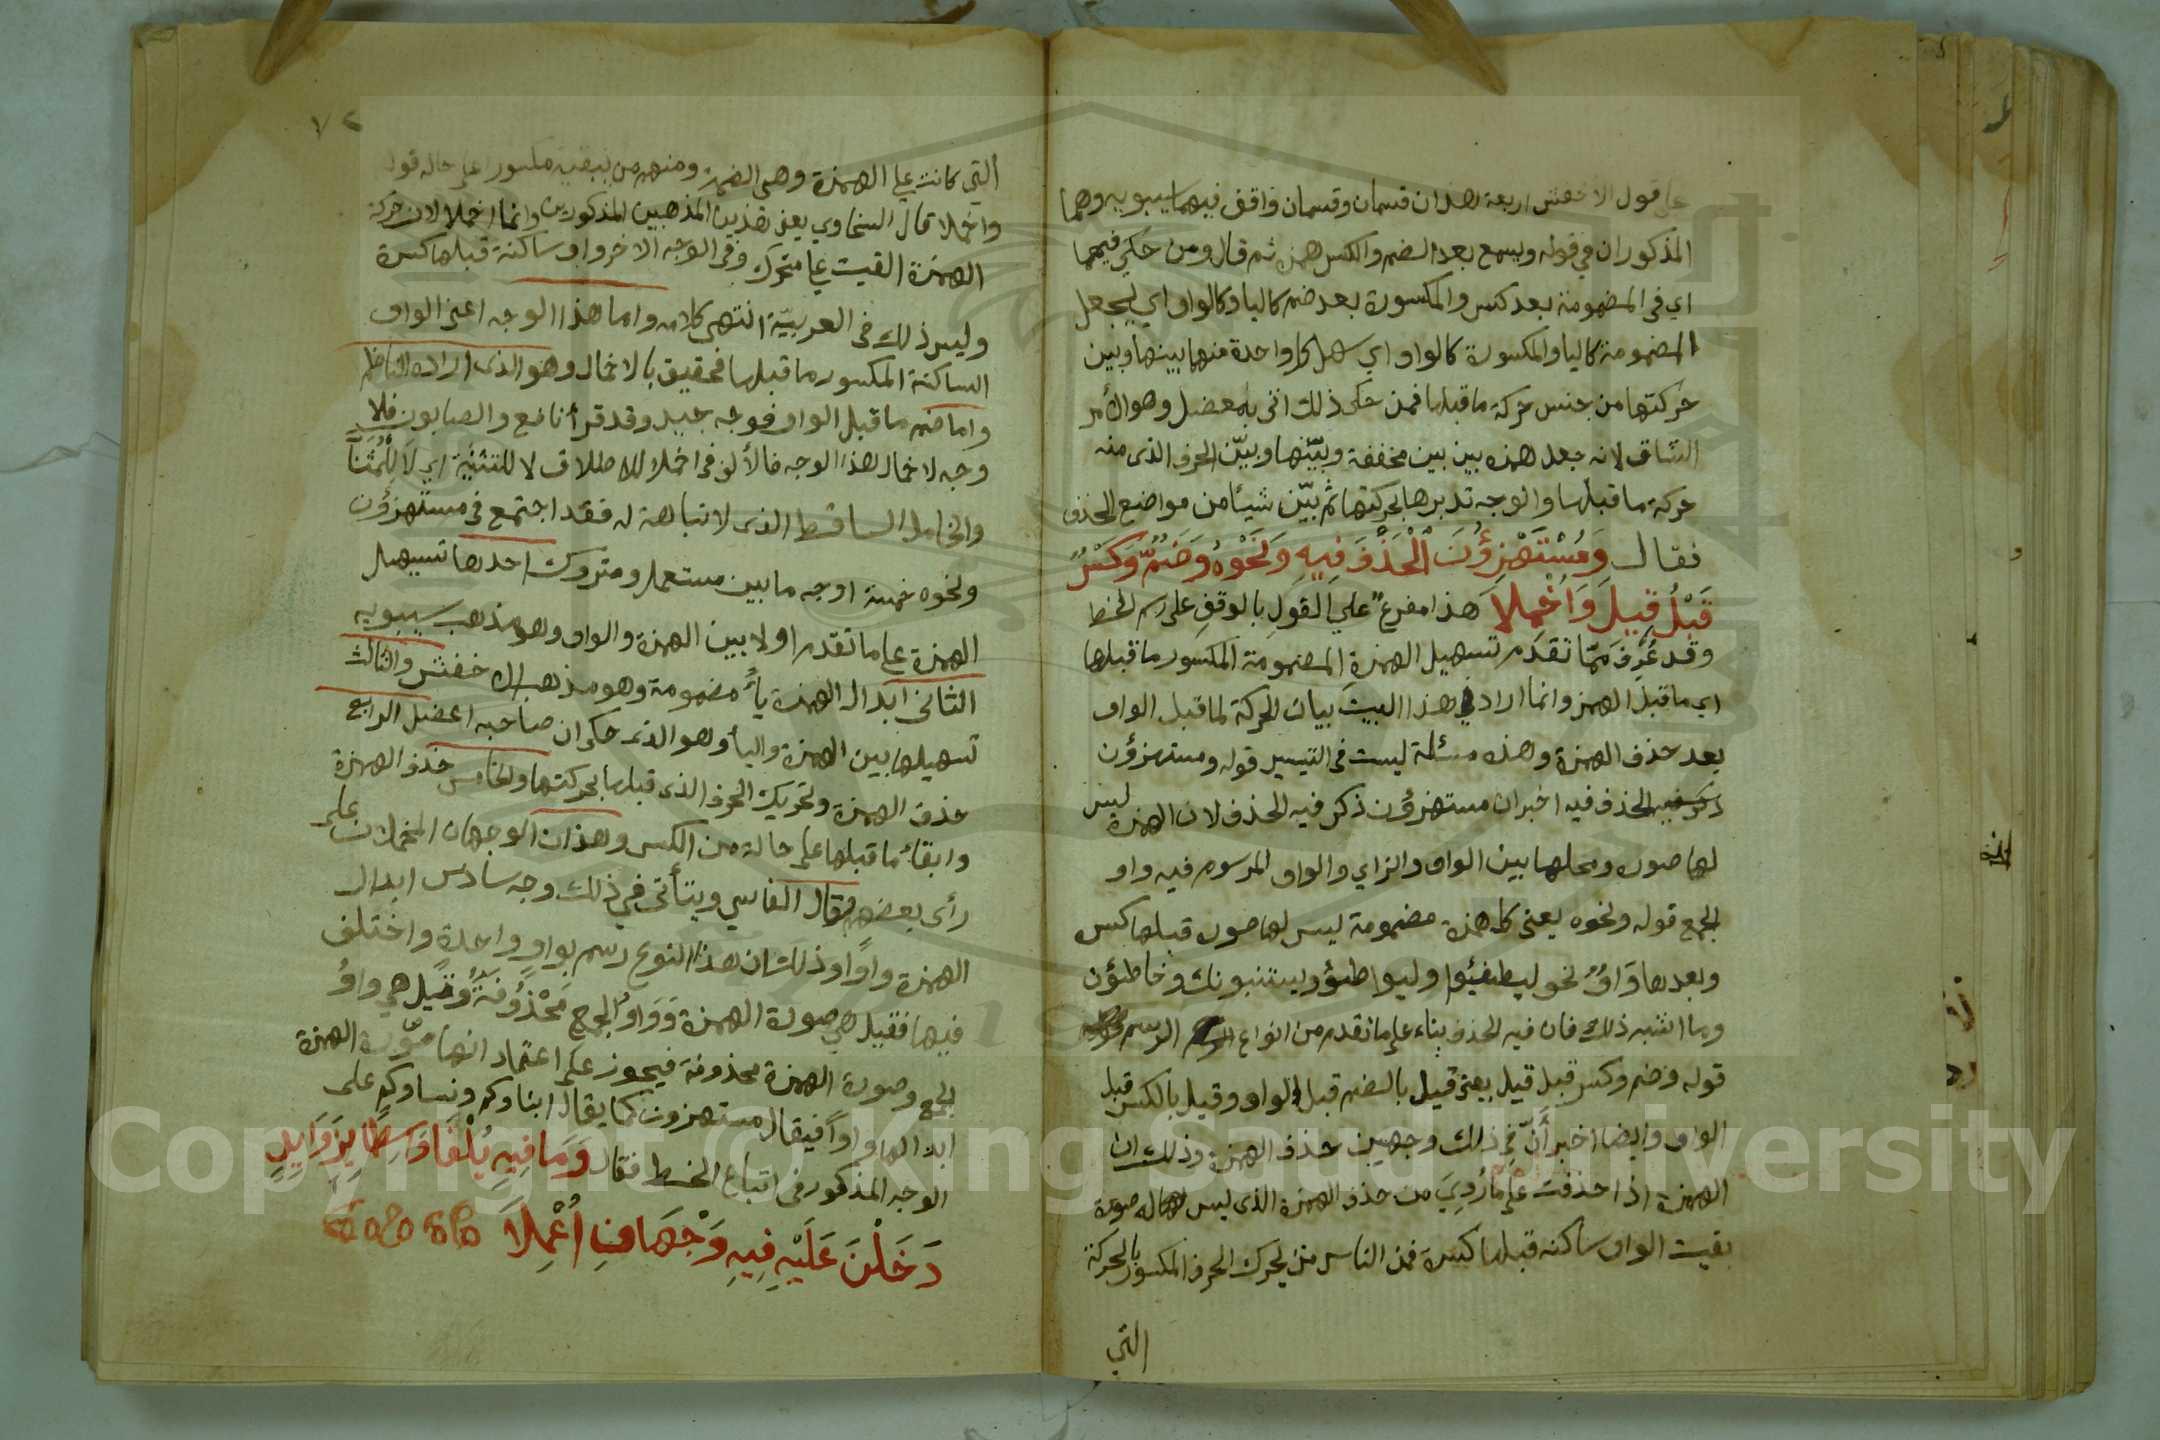 على قول الاخفش اربعة هذان قسمان وقسمان وافق فيهما سيبويه وهما
المذكوران في قوله ويسمع بعد الضم والكسر همزه ثم قال ومن حكي فيهما
اي في المضمومة بعد كسر والمكسورة بعد ضم كاليا وكالواو اي يجعل
المضمومة كاليا والمكسورة كالواو اي سهل كل واحدة منهما بينها وبين
حركتها من جنس حركة ما قبلها فمن حكى ذلك اتى بلمعضل وهو الأمر
الشاق لانه جعل همزه بين بين مخففة وبينها وبيّن الحرف الذى منه
حركة ما قبلها والوجه تدبرها بحركتها ثم بيّن شيئا من مواضع الحذف
فقال وَمُسْتَهْزِؤُنَ الْحَذْفُ فِيهِ وَنَحْوُهُ وَضَمٌّ وَكَسْرٌ
قَبْلُ قِيلَ وَاُخْمِلا هذا مفرع علي القول بالوقف على رسم الخط
وقد عُرِفَ مما تقدم تسهيل الهمزة المضمومة المكسور ما قبلها
اي ما قبل الهمز وانما اراد في هذا البيت بيان الحركة لما قبل الواو
بعد حذف الهمزة وهذه مسئلة ليست في التيسير قوله ومستهزؤن
الحذف فيه اخبر ان مستهزؤن ذكر فيه الحذف لان الهمزة ليس
لها صوره ومحلها بين الواو والزاي والواو المرسوم فيه واو
الجمع قوله ونحوه يعنى كل همزة مضمومة ليس لها صوره قبلها كسر
وبعدها وَاوٌ نحو ليطفئوا وليواطئوا ويستنبونك وخاطئون
وما اشبه ذلك فان فيه الحذف بناء على ما تقدم من انواع الرسم
قوله وضم وكسر قبل قيل يعنى قيل بالضم قبل الواو وقيل بالكسر قبل
الواو وايضا اخبر أنّ في ذلك وجهين حذف الهمزة وذلك ان
الهمزة اذا حذفت على ما رُوِيَ من حذف الهمزة الذى ليس له صورة
بقيت الواو ساكنه قبلها كسرة فمن الناس من يحرك الحرف المكسور بالحركة
التي
٧٢
التي كانت علي الهمزة وهى الضمة ومنهم من يبقيه مكسورا على حاله قوله
واخملا قال السخاوي يعنى هذين المذهبين المذكورين وانما اخملا لان حركة
الهمزة القيت على متحرك وفي الوجه الاخر واو ساكنة قبلها كسرة
وليس ذلك في العربيّة انتهى كلامه واما هذا الوجه اعنى الواو
الساكنة المكسور ما قبلها فحقيق بالاخمال وهو الذى اراده الناظم
واما ضم ما قبل الواو فوجه جيد وقد قرأ نافع والصابون فلا
وجه لاخمال هذا الوجه فالألف في اخملا للاطلاق لا للتثنية
والخامل الساقط الذى لا نباهة له فقد اجتمع في مستهزؤن
ونحوه خمسة اوجه ما بين مستعمل ومتروك احدها تسهيل
الهمزة على ما تقدم اولا بين الهمزة والواو وهو مذهب سيبويه
الثانى ابدال الهمزة ياءً مضمومة وهو مذهب الاخفش والثالث
تسهيلها بين الهمزة واليأ وهو الذى حكى ان صاحبه اعضل الرابع
حذف الهمزة وتحريك الحرف الذى قبلها بحركتها والخامس حذف الهمزة
وابقاء ما قبلها على حالة من الكسر وهذان الوجهان المخملان على
رأى بعضهم فقال الفاسي ويتأتى في ذلك وجه سادس ابدال
الهمزة واوًا وذلك ان هذا النوع رسم بواوٍ واحدةٍ واختلف
فيها فقيل هي صورة الهمزة وَوَاوُ الجمع مَحْذُوفَةٌ وقيل هي واوُ
الجمع وصورة الهمزة محذوفة فيجوز على اعتماد انها صورة الهمزة
ابدالها واوًا فيقال مستهزون كما يقال ابناوكم ونساوكم على
الوجه المذكور في اتباع الخط فقال وَمَا فِيهِ يُلْفَا وَاسِطًا بِزَوَايِدٍ
دَخَلْنَ عَلَيْهِ فِيهِ وَجْهَانِ اُعْمِلاَ
Copyright © King Saud University